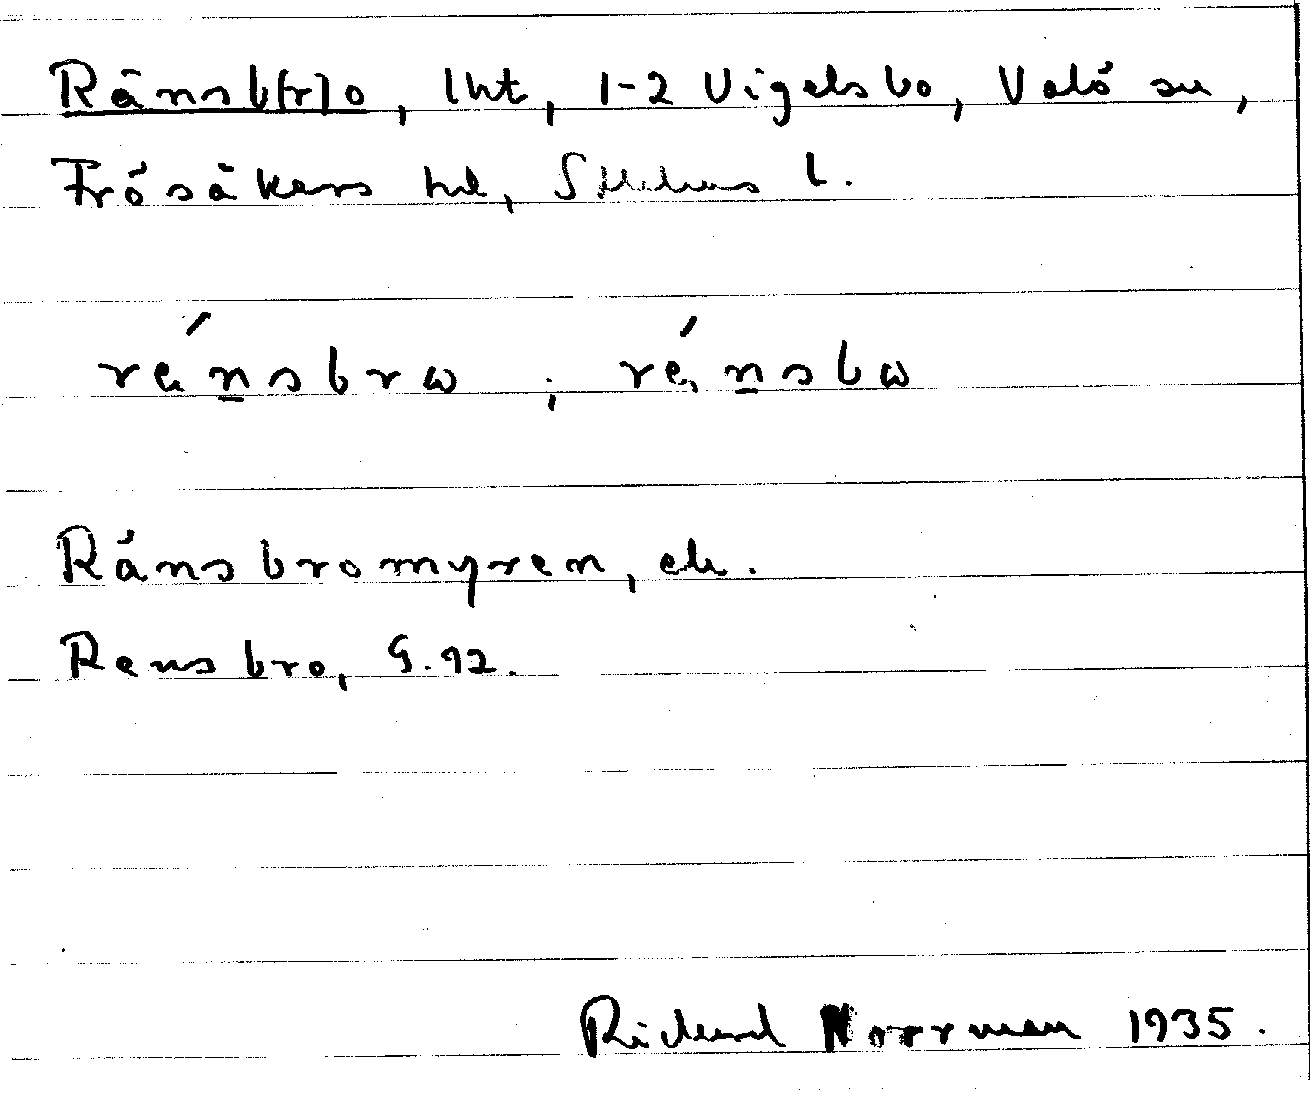 Ränsb(r)o, lht, 1-2 Vigelsbo, Valö sn,
Frösåkers hd, Sthlms l.
ránsbrω ; rénsbω
Ränsbromyren, ek.
Rensbro, G.92.
Richard Norrman 1935.